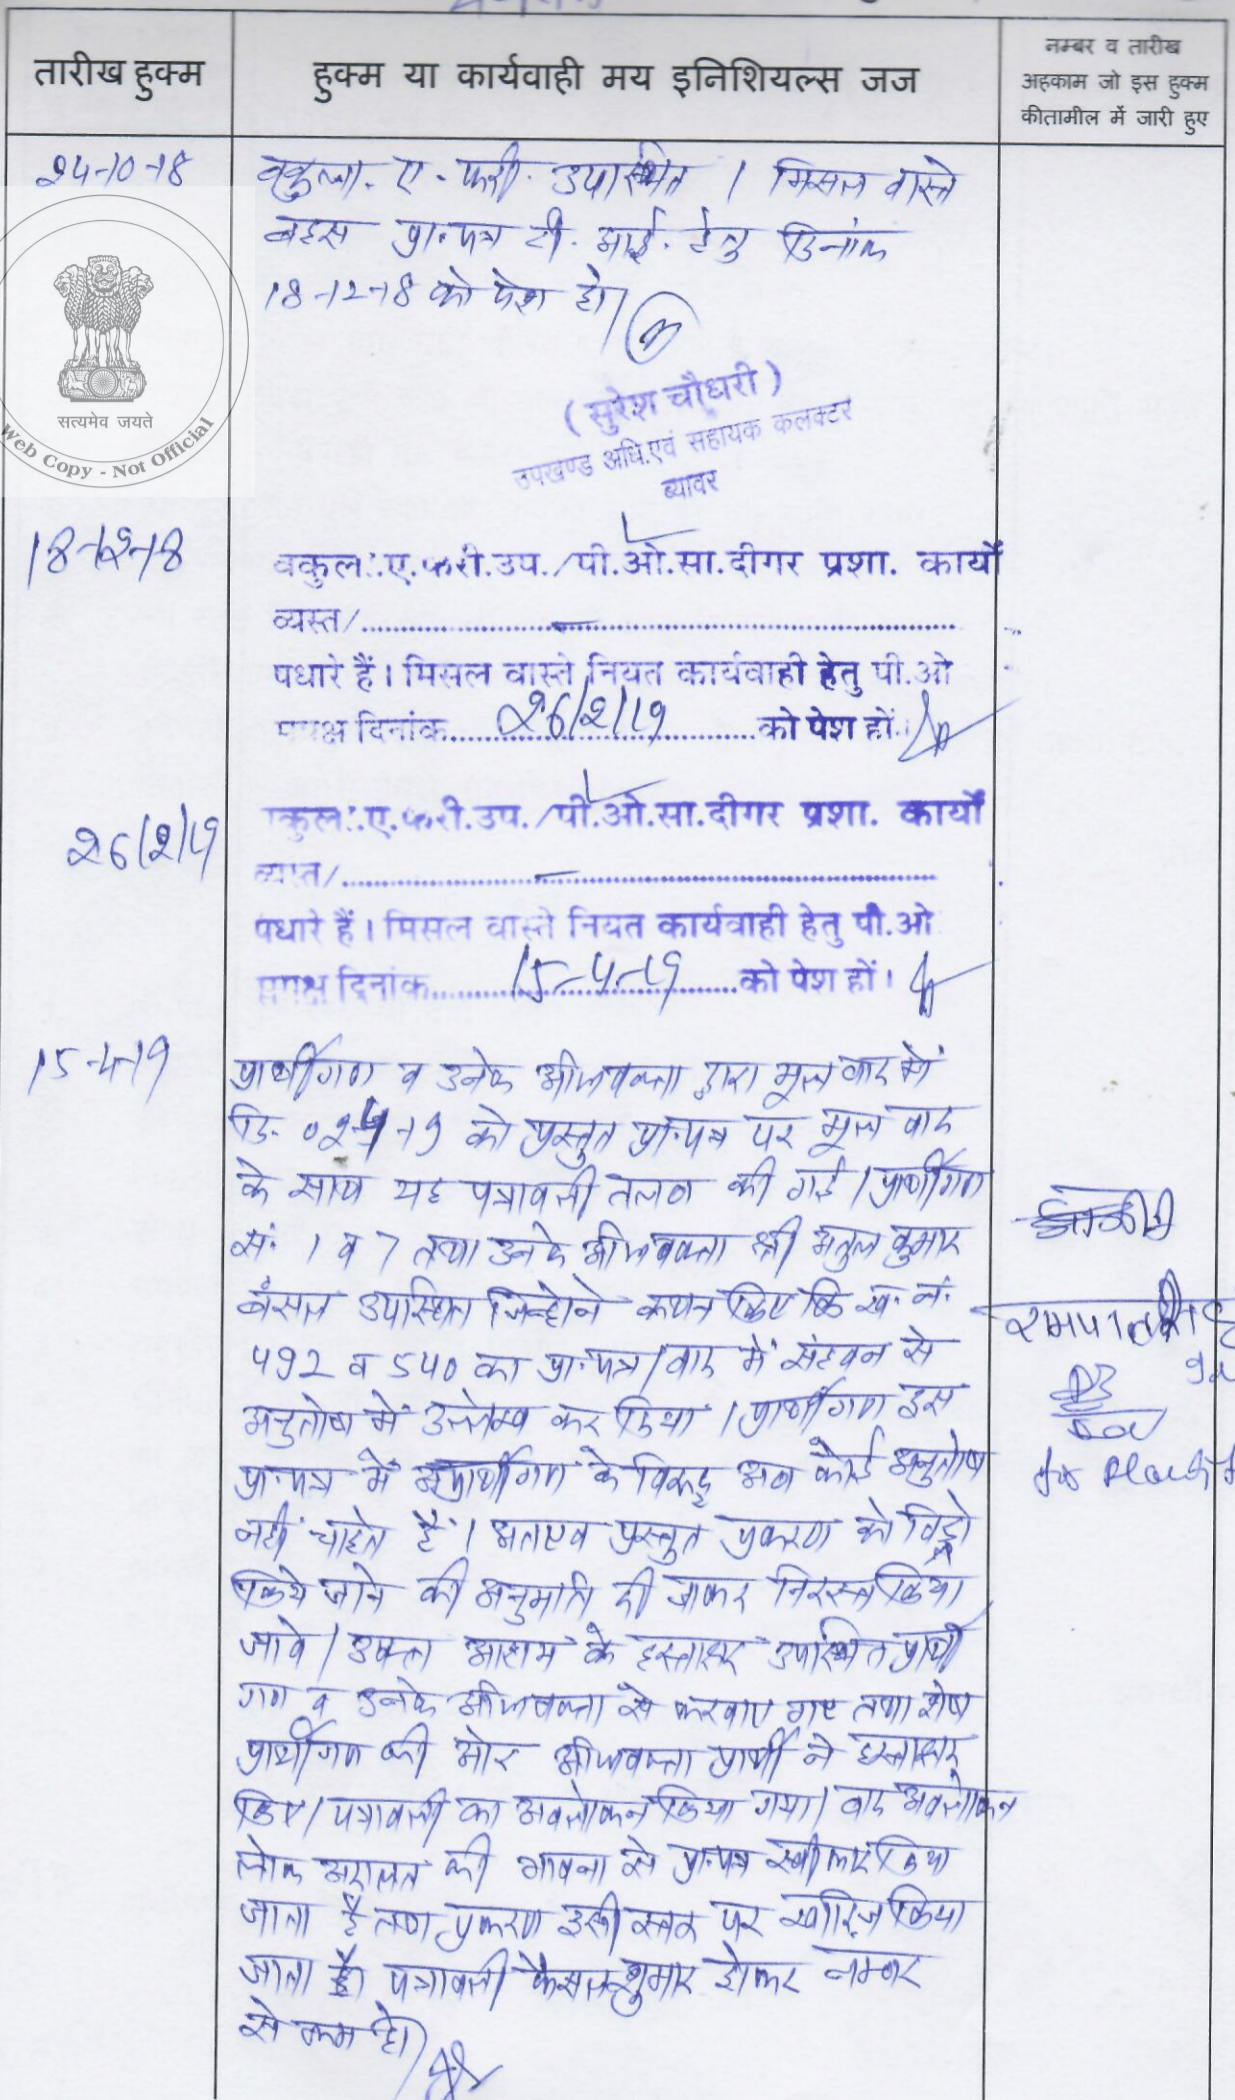 तारीख हुक्म
हुक्म या कार्यवाही मय इनिशियल्स जज
नम्बर व तारीख
अहकाम जो इस हुक्म
कीतामील में जारी हुए
24-10-18
वकुला. ए. फरी. उपस्थित । मिसल वास्ते
बहस प्रा.पत्र टी. आई. हेतु दिनांक
18-12-18 को पेश हो।
सत्यमेव जयते
Web Copy - Not Official
(सुरेश चौधरी)
उपखण्ड अधि.एवं सहायक कलक्टर
ब्यावर
18-12-18
वकुल.ए.फरी.उप./पी.ओ.सा.दीगर प्रशा. कार्यो
व्यस्त/
पधारे हैं। मिसल वास्ते नियत कार्यवाही हेतु पी.ओ
समक्ष दिनांक 26/2/19 को पेश हों।
26/2/19
वकुल.ए.फरी.उप./पी.ओ.सा.दीगर प्रशा. कार्यो
व्यस्त/
पधारे हैं। मिसल वास्ते नियत कार्यवाही हेतु पी.ओ
समक्ष दिनांक 15-4-19 को पेश हों।
15-4-19
प्रार्थीगण व उनके अभिवक्ता द्वारा मूल वाद में
दि. 02-4-19 को प्रस्तुत प्रा.पत्र पर मूल वाद
के साथ यह पत्रावली तलब की गई। प्रार्थीगण
सं. 1 व 7 तथा उनके अभिवक्ता श्री अतुल कुमार
बंसल उपस्थित जिन्होंने कथन किए कि ख. नं.
492 व 540 का प्रा.पत्र/वाद में सहवन से
अनुतोष में उल्लेख कर दिया। प्रार्थीगण इस
प्रा.पत्र में अप्रार्थीगण के विरुद्ध अब कोई अनुतोष
नहीं चाहते हैं। अतएव प्रस्तुत प्रकरण को विड्रो
किये जाने की अनुमति दी जाकर निरस्त किया
जावे। उक्त आशय के हस्ताक्षर उपस्थित प्रार्थी
गण व उनके अभिवक्ता से करवाए गए तथा शेष
प्रार्थीगण की ओर अभिवक्ता प्रार्थी ने हस्ताक्षर
किए। पत्रावली का अवलोकन किया गया। बाद अवलोकन
लोक अदालत की भावना से प्रा.पत्र स्वीकार किया
जाता है तथा प्रकरण इसी स्तर पर खारिज किया
जाता है। पत्रावली फैसलशुमार होकर नम्बर
से कम हो।